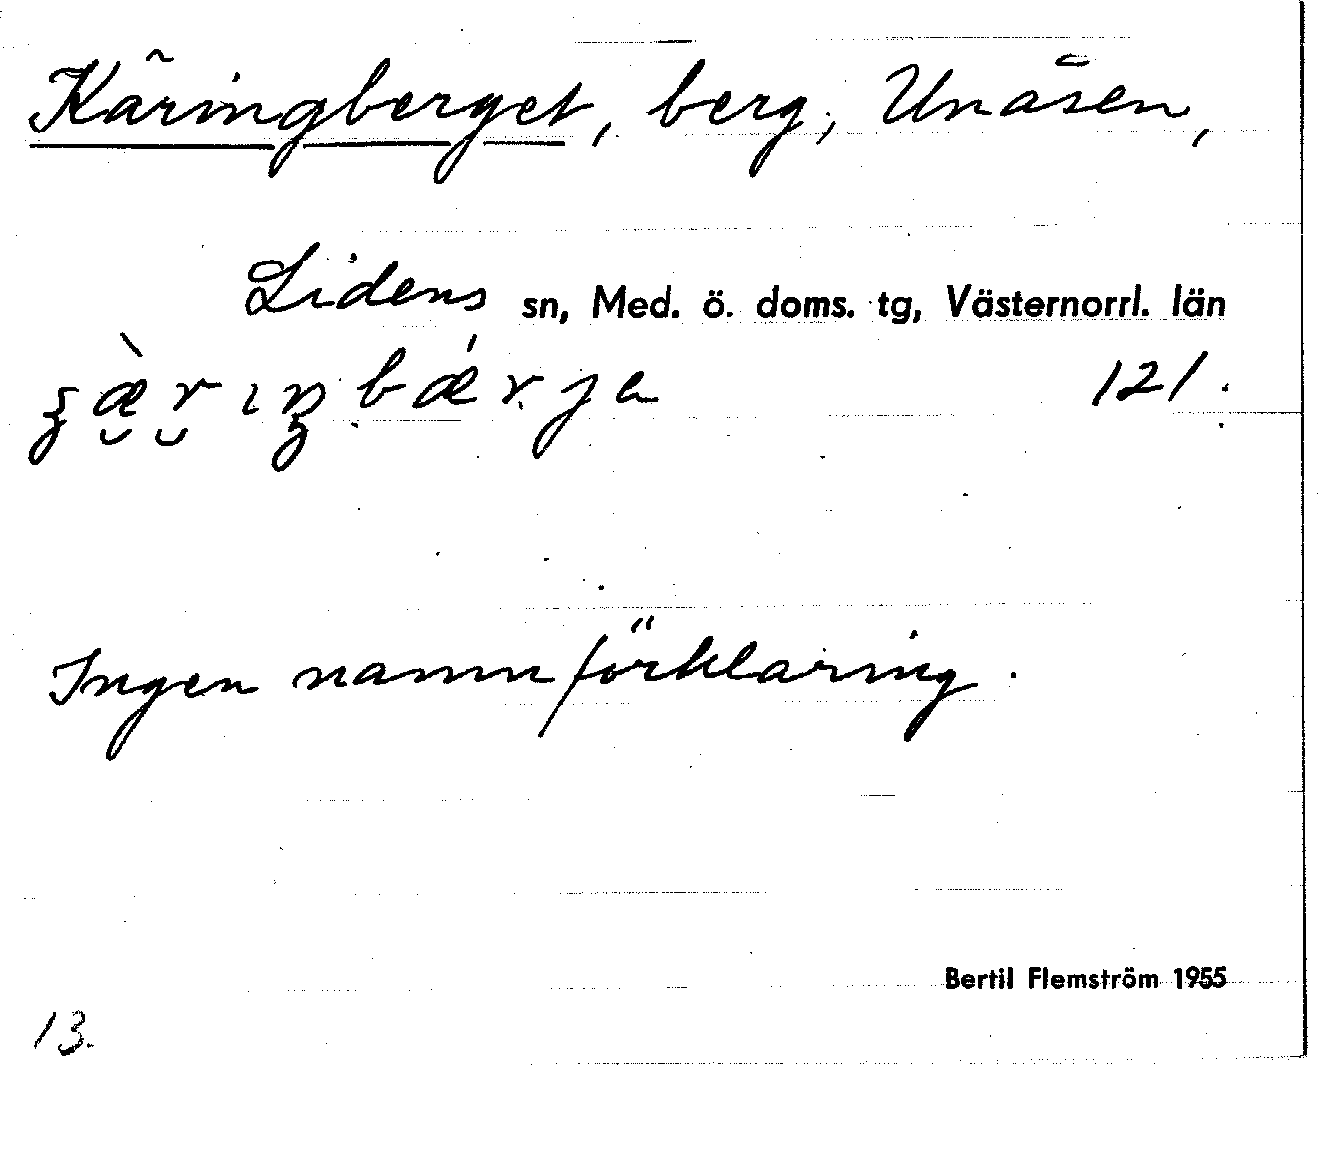 Käringberget, berg, Unåsen,
Lidens sn, Med. ö. doms. tg, Västernorrl. län
121.
Ingen namnförklaring.
Bertil Flemström 1955
13.